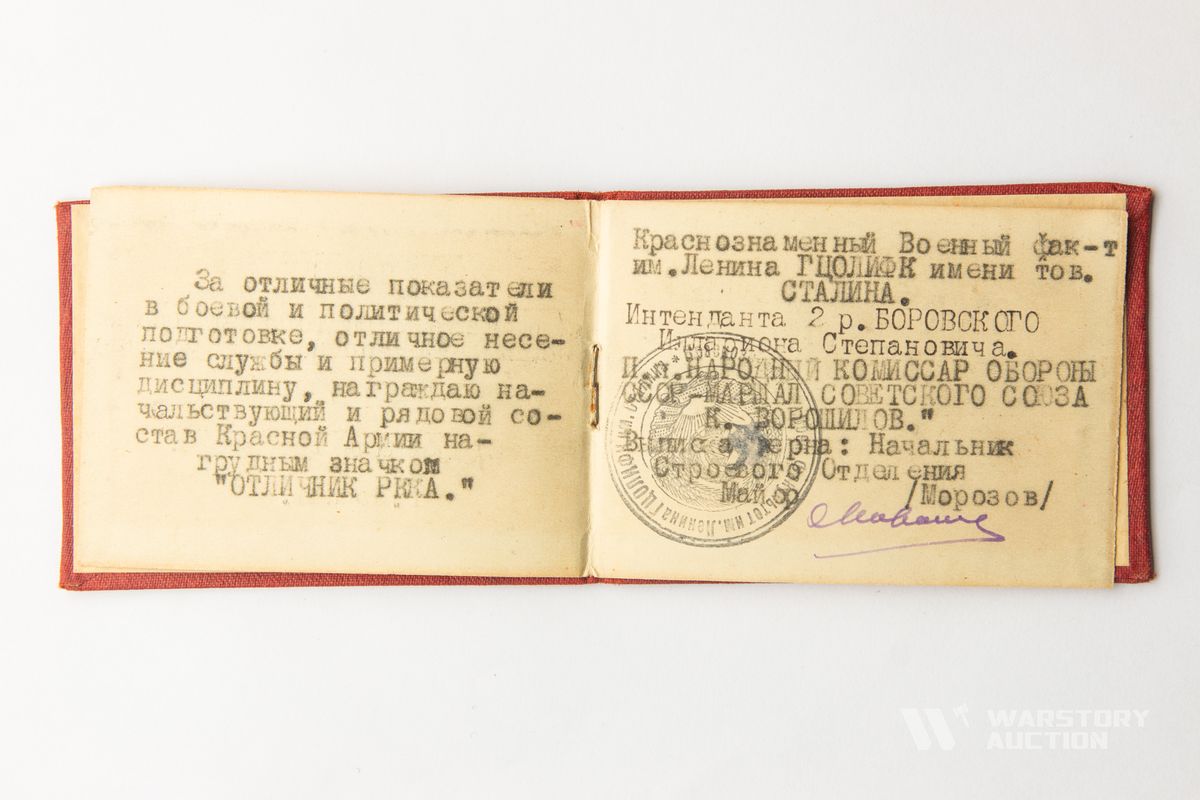 За отличные показатели
в боевой и политической
подготовке, отличное несе-
ние службы и примерную
дисциплину, награждаю на-
чальствующий и рядовой со-
став Красной Армии на-
грудным значком
"ОТЛИЧНИК РККА."
Краснознаменный Военный фак-т
им.Ленина ГЦОЛИФК имени тов.
СТАЛИНА.
Интенданта 2 р. БОРОВСКОГО
Иллариона Степановича.
НАРОДНЫЙ КОМИССАР ОБОРОНЫ
СССР-МАРШАЛ СОВЕТСКОГО СОЮЗА
К. ВОРОШИЛОВ."
Выписка верна: Начальник
Строевого Отделения
Майор /Морозов/
им. Ленина ГЦОЛИФК
WARSTORY
AUCTION